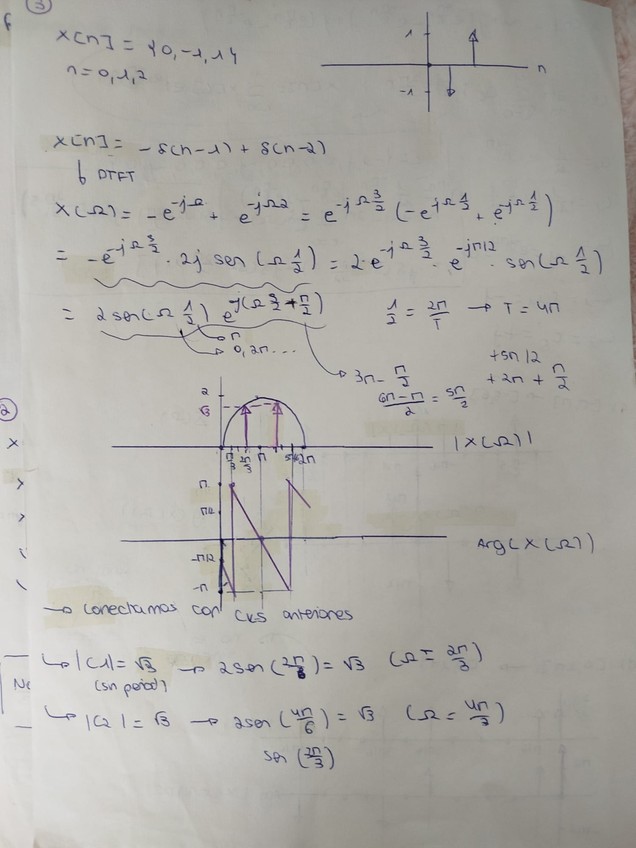 3
x[n] = {0, -1, 1}
n = 0, 1, 2
1
-1
n
x[n] = -δ(n-1) + δ(n-2)
↳ DTFT
X(Ω) = -e^{-jΩ} + e^{-jΩ2} = e^{-jΩ 3/2} (-e^{jΩ 1/2} + e^{-jΩ 1/2})
= -e^{-jΩ 3/2} · 2j sen(Ω 1/2) = 2·e^{-jΩ 3/2} · e^{-jπ/2} · sen(Ω 1/2)
= 2 sen(Ω 1/2) e^{-j(Ω 3/2 + π/2)}
1/2 = 2π/T → T = 4π
π
0, 2π...
3π - π/2
(6π-π)/2 = 5π/2
+5π/2
+2π + π/2
2
√3
π/3 2π/3 π 2π
|X(Ω)|
π
π/2
-π/2
-π
Arg(X(Ω))
→ conectamos con CKS anteriores
↳ |C1| = √3 → 2sen(2π/6) = √3 (Ω = 2π/3)
(sn period)
↳ |C2| = √3 → 2sen(4π/6) = √3 (Ω = 4π/3)
sen(2π/3)
2
x